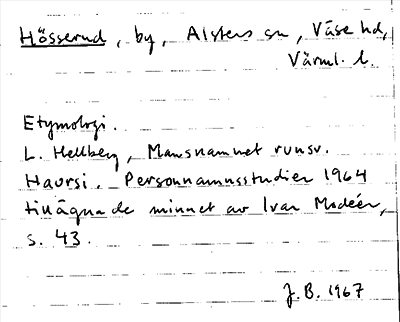 Hösserud, by, Alsters sn, Väse hd,
Värml. l.
Etymologi.
L. Hellberg, Mansnamnet runsv.
Haursi. Personnamnsstudier 1964
tillägnade minnet av Ivar Modéer,
s. 43.
J. B. 1967